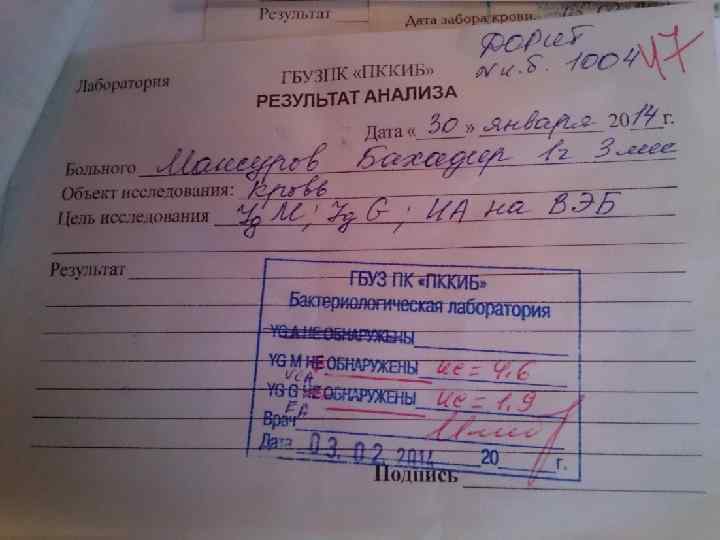 Результат
Дата забора крови
ДОРИТ
Лаборатория ГБУЗПК «ПККИБ» N и.б. 1004 47
РЕЗУЛЬТАТ АНАЛИЗА
Дата « 30 » января 2014 г.
Больного Мансуров Бахадир 1г 3 мес
Объект исследования: кровь
Цель исследования Ig M; Ig G; ИА на ВЭБ
Результат
ГБУЗ ПК «ПККИБ»
Бактериологическая лаборатория
YG A НЕ ОБНАРУЖЕНЫ
YG M НЕ ОБНАРУЖЕНЫ ис = 4,6
VCA
YG G НЕ ОБНАРУЖЕНЫ ис = 1,9
EA
Врач
Дата 03.02.2014 20 г.
Подпись